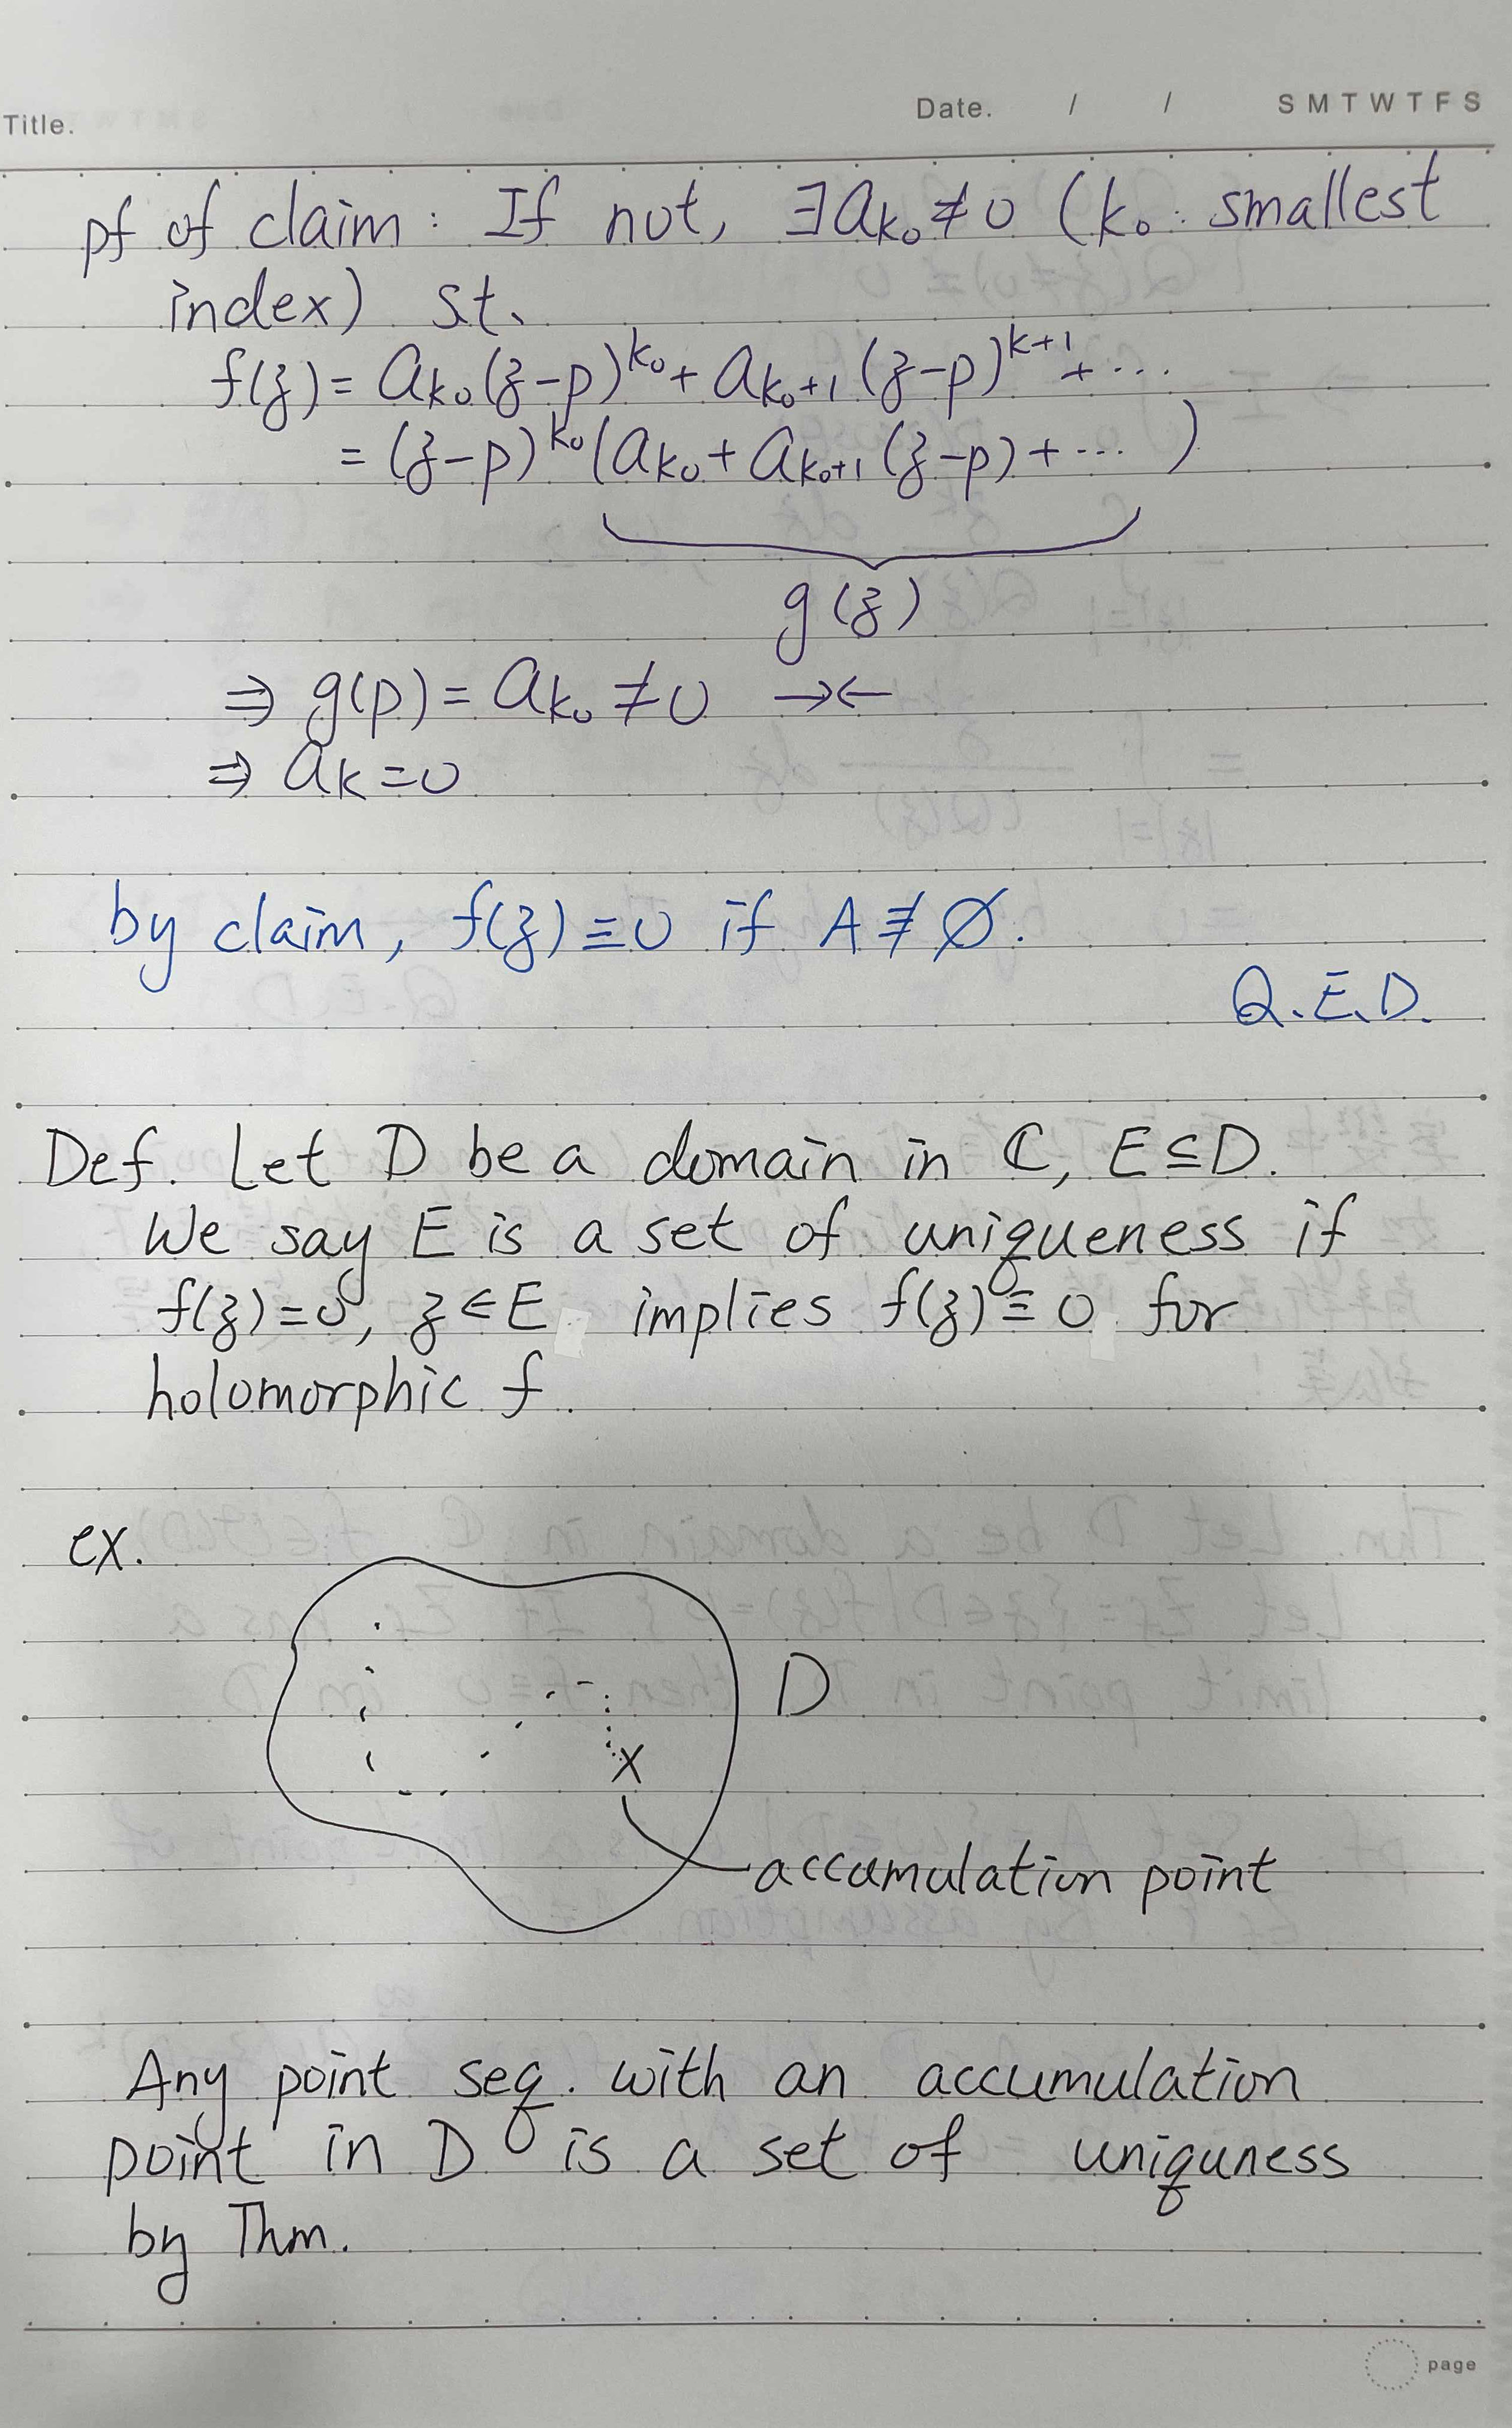 Title.
Date. / / S M T W T F S
pf of claim: If not, ∃a_{k₀}≠0 (k₀: smallest
index) st.
f(z) = a_{k₀}(z-p)^{k₀} + a_{k₀+1}(z-p)^{k+1} + ...
= (z-p)^{k₀}(a_{k₀} + a_{k₀+1}(z-p) + ... )
g(z)
⇒ g(p) = a_{k₀} ≠ 0 →←
⇒ a_k = 0
by claim, f(z) ≡ 0 if A ≢ ∅.
Q.E.D.
Def. Let D be a domain in ℂ, E ⊆ D.
We say E is a set of uniqueness if
f(z)=0, z ∈ E implies f(z) ≡ 0 for
holomorphic f.
ex.
D
x
accumulation point
Any point seq. with an accumulation
point in D is a set of uniquness
by Thm.
page